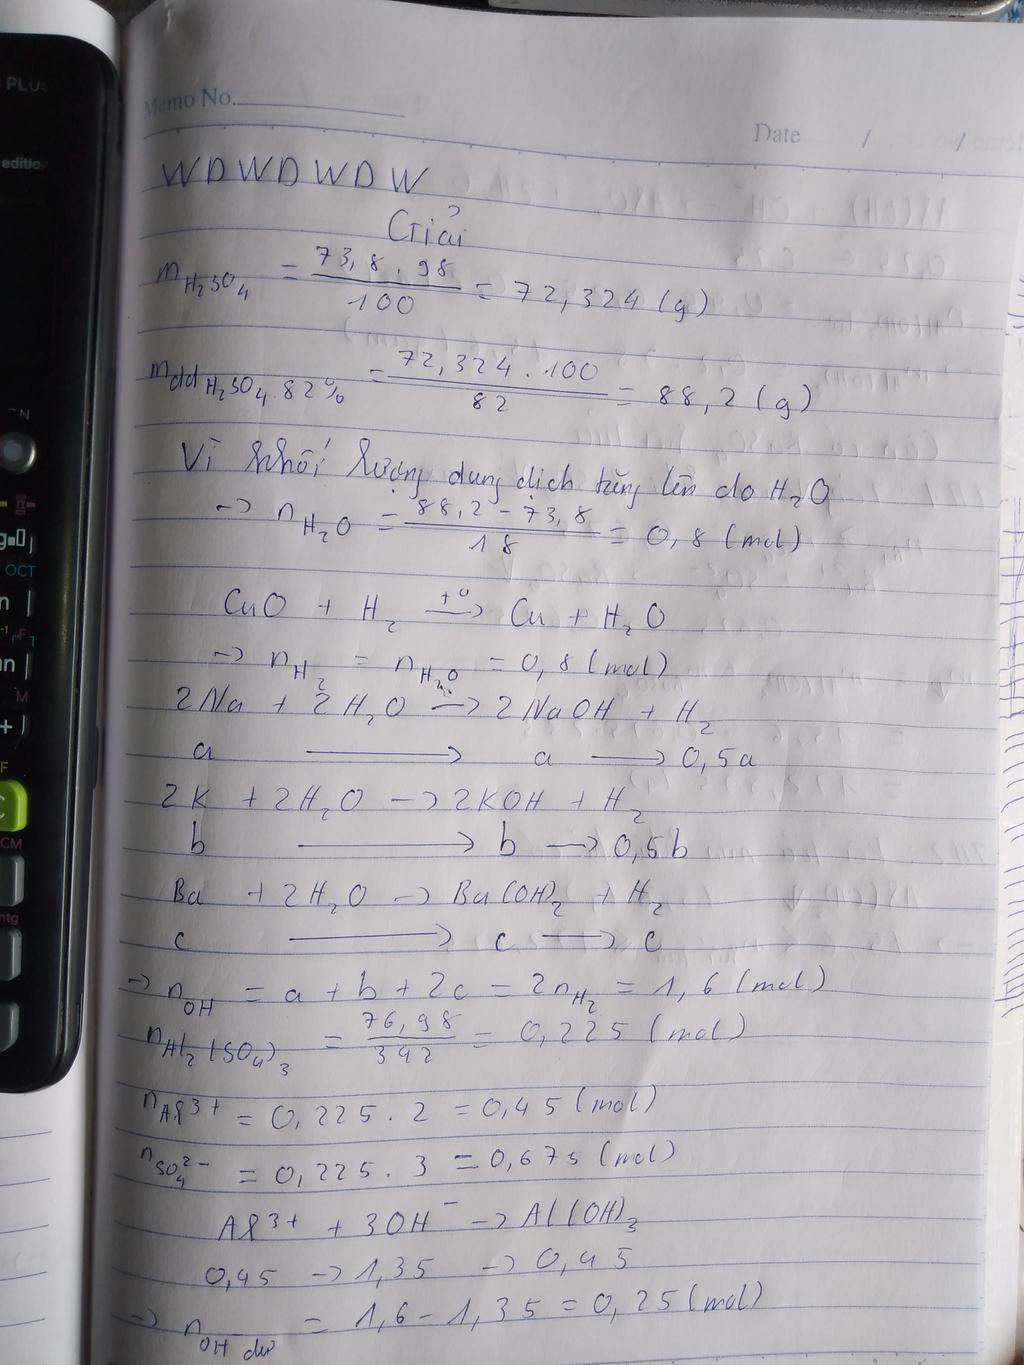 PLUS
edition
Memo No.
Date / /
WDWDWDW
Giải
m H₂SO₄ = 73,8.98 / 100 = 72,324 (g)
mdd H₂SO₄ 82% = 72,324.100 / 82 = 88,2 (g)
Vì khối lượng dung dịch tăng lên do H₂O
→ n H₂O = 88,2 - 73,8 / 18 = 0,8 (mol)
CuO + H₂ t⁰→ Cu + H₂O
→ n H₂ = n H₂O = 0,8 (mol)
2Na + 2H₂O → 2NaOH + H₂
a → a → 0,5a
2K + 2H₂O → 2KOH + H₂
b → b → 0,5b
Ba + 2H₂O → Ba(OH)₂ + H₂
c → c → c
→ n OH = a + b + 2c = 2n H₂ = 1,6 (mol)
n Al₂(SO₄)₃ = 76,98 / 342 = 0,225 (mol)
n Al³⁺ = 0,225.2 = 0,45 (mol)
n SO₄²⁻ = 0,225.3 = 0,675 (mol)
Al³⁺ + 3OH⁻ → Al(OH)₃
0,45 → 1,35 → 0,45
→ n OH⁻ dư = 1,6 - 1,35 = 0,25 (mol)